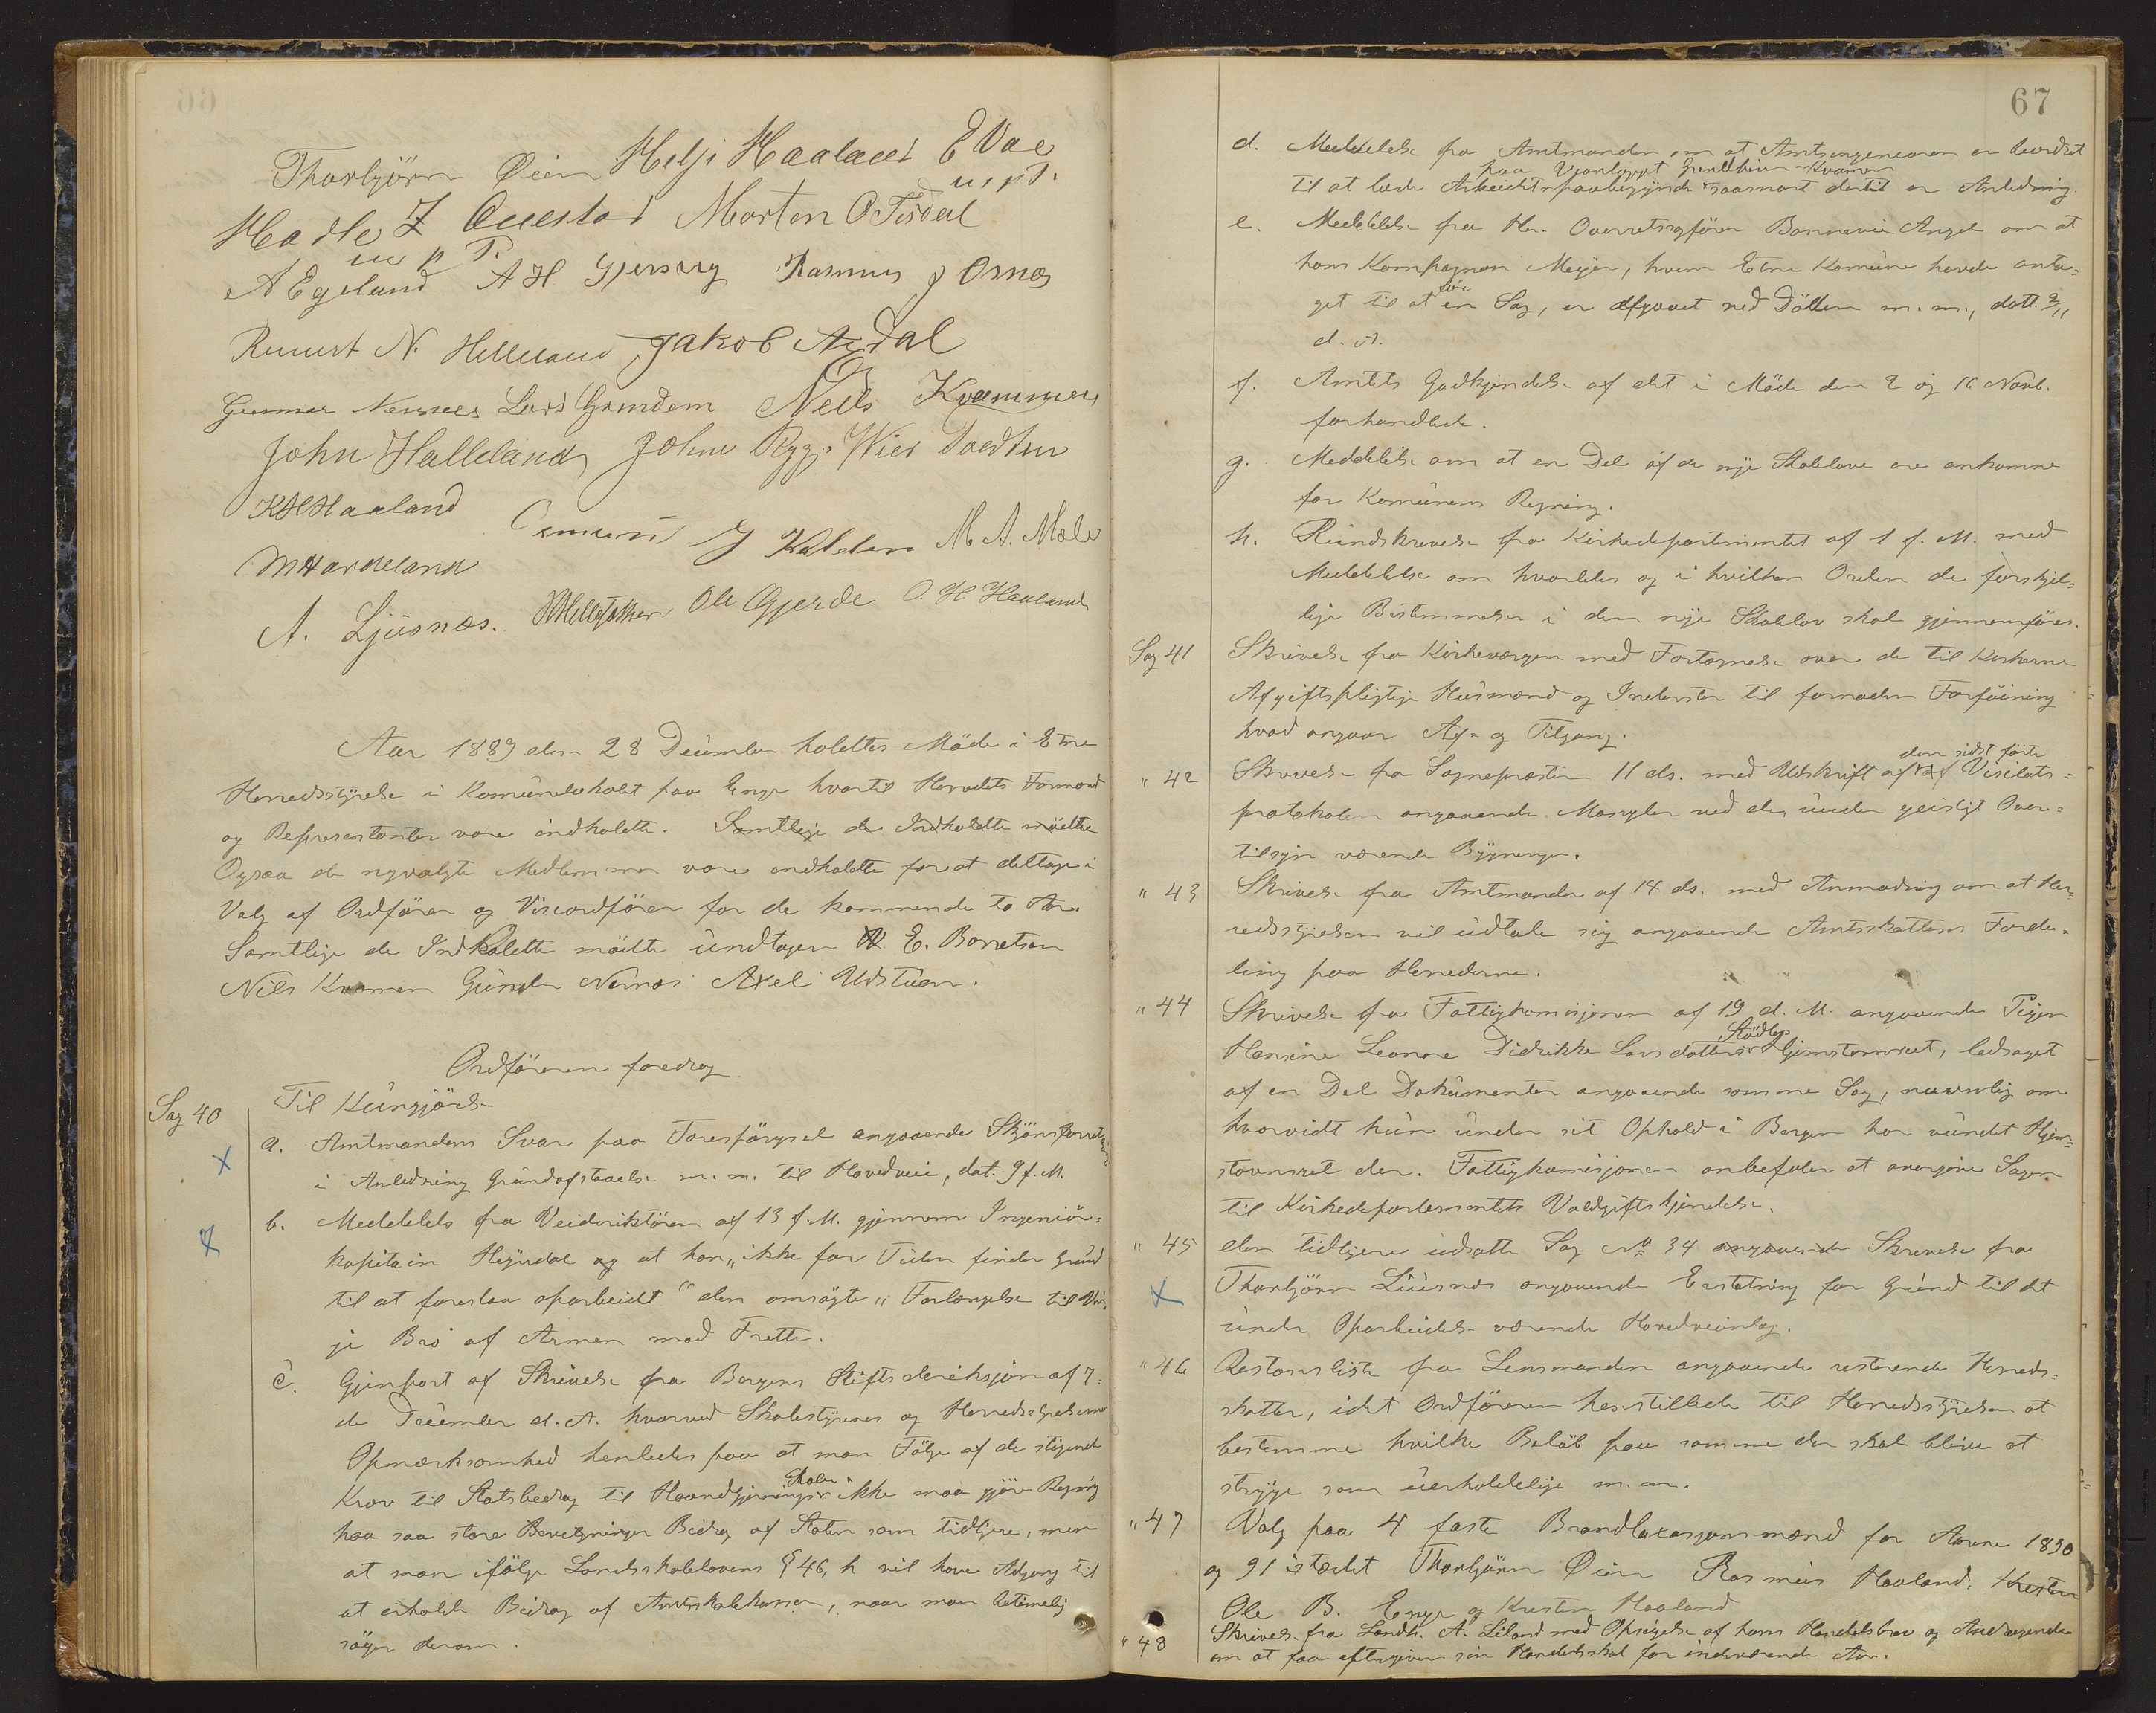 Thorbjörn Øien Helje Haaland E Vae
m. p. P.
Hadle J Querstad Morten O Tesdal
m p P.
A Egeland A H Gjersvig Rasmus J Osnes
Knut N. Helleland Jakob Ardal
Gunnar Nernæs Lars Grindem Neils Kvammen
John Halleland John Rygg Wier
K H Haaland
Osmund J Kaldem M. A. Mæle
M Hardeland
A. Ljüsnæs. Ole Gjerde O. H. Haaland
Aar 1889 den 28 December holdtes Möde i Etne
Herredsstyrelse i Komünelokalet paa Enge hvortil Herredets Formænd
og Repræsentanter vare indkaldte. Samtlige de Indkaldte mödte
Ogsaa de nyvalgte Medlemmer vare indkaldte for at deltage i
Valg af Ordförer og Viseordförer for de kommende to Aar.
Samtlige de Indkaldte mödte ündtagen E. Børretsen
Nils Kvamen Günder Nernæs Axel Udstüen.
Ordföreren foredrog
Sag 40 Til Küngjörelse
a. Amtmandens Svar paa Forespörgsel angaaende Skjönsforretning
i Anledning Gründafstaaelse m. m. til Hovedveie, dat. 9 f. M.
b. Meddelelse fra Veidirektören af 13 f. M. gjennem Ingeniör-
kapitain Heyerdal og at han "ikke for Tiden finder Gründ
til at foreslaa oparbeidt" den omsögte "Forlængelse til Vin-
je Bro af Armen mod Frette.
c. Gjenpart af Skrivelse fra Bergens Stiftsdireksjon af 7-
de December d. A. hvorved Skolestyrernes og Herredsstyrelsernes
Opmærksomhed henledes paa at man Fölge af de stigende
Krav til Statsbedrag til Haandgjernings Skoler ikke maa gjöre Regning
paa saa store Bevilgninger Bidrag af Staten som tidligere, men
at man ifölge Landsskolelovens § 46, h vil have Adgang til
at erholde Bidrag af Amtsskolekassen, naar man betimelig
söger derom.
67
d. Meddelelse fra Amtmanden om at Amtsingeniøren er beordret
paa Veianlægget Grindheim-Kvamen
til at lede Arbeidets paabegynde saasnart dertil er Anledning.
e. Meddelelse fra Hr. Overretssagförer Bonnevie Angel om at
hans Kompagnon Meyer, hvem Etne Komüne havde anta-
get til at före en Sag, er afgaaet ved Döden m. m., datt. 2/11
d. A.
f. Amtets Godkjendelse af det i Möde den 2 og 16 Novb.
forhandlede.
g. Meddelelse om at en Del af de nye Skolelove ere ankomne
for Komünens Regning.
h. Ründskrivelse fra Kirkedepartementet af 1 f. M. med
Meddelelse om hvorledes og i hvilken Orden de forskjel-
lige Bestemmelser i den nye Skolelov skal gjennemföres.
Sag 41 Skrivelse fra Kirkeværgen med Fortegnelse over de til Kirkerne
Afgiftspligtige Hüsmænd og Inderster til fornøden Forföining
hvad angaar Af- og Tilgang.
" 42 Skrivelse fra Sognepresten 11 ds. med Udskrift af den sidst förte Visitats-
protokolen angaaende Mangler ved den ünder geistligt Over-
tilsyn værende Bygninger.
" 43 Skrivelse fra Amtmanden af 14 ds. med Anmodning om at Her-
redsstyrelsen vil üdtale sig angaaende Amtsskattens Forde-
ling paa Herrederne.
" 44 Skrivelse fra Fattigkomisjonen af 19 d. M. angaaende Pigen
Hansine Leonore Didrikke Larsdatter Stödles Hjemstavnsret, ledsaget
af en Del Dokümenter angaaende samme Sag, navnlig om
hvorvidt hün ünder sit Ophold i Bergen har vündet Hjem-
stavnsret der. Fattigkomisjonen anbefaler at overgive Sagen
til Kirkedepartementets Voldgiftskjendelse.
" 45 den tidligere üdsatte Sag No 34 angaaende Skrivelse fra
Thorbjörn Liüsnes angaaende Erstatning for Gründ til det
ünder Oparbeidelse værende Hovedveianlæg.
" 46 Restanseliste fra Lensmanden angaaende resterende Herreds-
skatter, idet Ordföreren henstillede til Herredsstyrelsen at
bestemme hvilke Beløb paa samme der skal blive at
stryge som üerholdelige m. m.
" 47 Valg paa 4 faste Brandtaxasjonsmænd for Aarene 1890
og 91 istedet Thorbjörn Øien Rasmüs Haaland, Kresten
Ole B. Enge og Kresten Haaland
" 48 Skrivelse fra Landh. A. Liland med Opsigelse af hans Handelsbrev og Andragende
om at faa eftergiven sin Handelsskat for indeværende Aar.